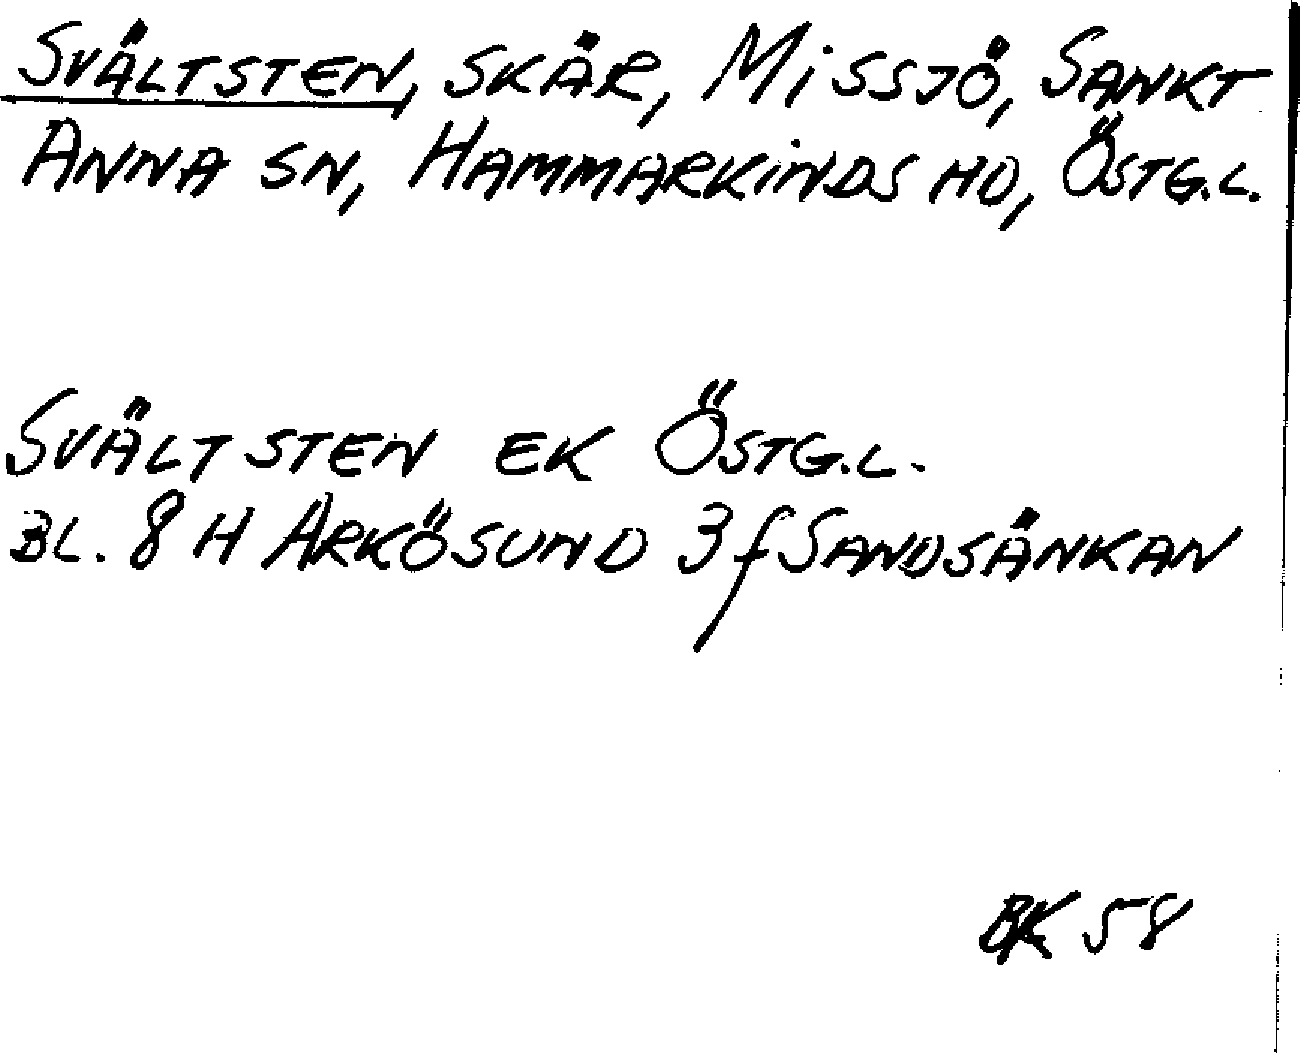 SVÄLTSTEN, SKÄR, MISSJÖ, SANKT
ANNA SN, HAMMARKINDS HD, ÖSTG.L.
SVÄLTSTEN EK ÖSTG.L.
BL. 8 H ARKÖSUND 3 f SANDSÄNKAN
BK 58